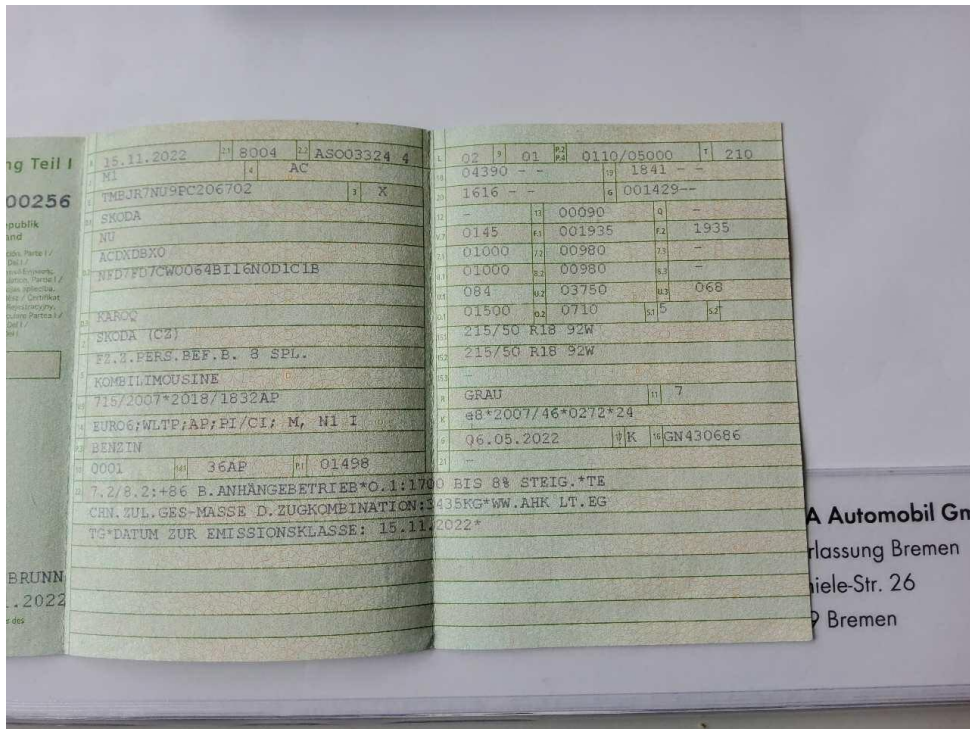 ng Teil I
00256
epublik
and
BRUNN
.2022
B 15.11.2022 2.1 8004 2.2 ASO03324 4
J M1 4 AC
E TMBJR7NU9PC206702 3 X
D.1 SKODA
D.2 NU
ACDXDBX0
NFD7FD7CW0064BI16N0D1C1B
D.3 KAROQ
2 SKODA (CZ)
5 FZ.Z.PERS.BEF.B. 8 SPL.
KOMBILIMOUSINE
V.9 715/2007*2018/1832AP
14 EURO6;WLTP;AP;PI/CI; M, N1 I
P.3 BENZIN
10 0001 14.1 36AP P.1 01498
22 7.2/8.2:+86 B.ANHÄNGEBETRIEB*O.1:1700 BIS 8% STEIG.*TE
CHN.ZUL.GES-MASSE D.ZUGKOMBINATION:3435KG*WW.AHK LT.EG
TG*DATUM ZUR EMISSIONSKLASSE: 15.11.2022*
L 02 9 01 P.2 P.4 0110/05000 T 210
18 04390 - - 19 1841 - -
20 1616 - - G 001429--
12 - 13 00090 Q -
V.7 0145 F.1 001935 F.2 1935
7.1 01000 7.2 00980 7.3 -
8.1 01000 8.2 00980 8.3 -
U.1 084 U.2 03750 U.3 068
O.1 01500 O.2 0710 S.1 5 S.2 -
15.1 215/50 R18 92W
15.2 215/50 R18 92W
15.3 -
R GRAU 11 7
K e8*2007/46*0272*24
6 06.05.2022 17 K 16 GN430686
21 -
A Automobil Gm
rlassung Bremen
iele-Str. 26
9 Bremen